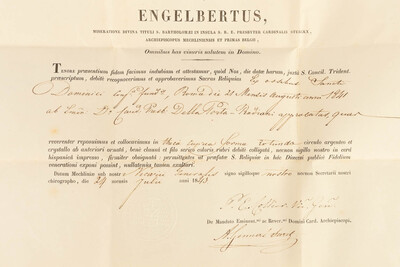 ENGELBERTUS,
MISERATIONE DIVINA TITULI S. BARTHOLOMÆI IN INSULA S. R. E. PRESBYTER CARDINALIS STERCKX,
ARCHIEPISCOPUS MECHLINIENSIS ET PRIMAS BELGII,
Omnibus has visuris salutem in Domino.
TENORE præsentium fidem facimus indubiam et attestamur, quod Nos, die data harum, juxta S. Concil. Trident.
præscriptum, debitè recognovimus et approbaverimus Sacras Reliquias Ex ossibus Sancti
Dominici Romæ die 21 Mensis Augusti anni 1841
ab Della Porta Rodiani approbatas quas
reverenter reposuimus et collocavimus in theca cuprea forma rotunda circulo argenteo et
crystallo ab anteriori munitâ, benè clausâ et filo serico coloris rubri debitè colligatâ, necnon sigillo nostro in cerâ
hispanicâ impresso, firmiter obsignatâ; permittentes ut præfatæ S. Reliquiæ in hâc Diœcesi publicæ Fidelium
venerationi exponi possint, nullatenus tamen exaltari.
Datum Mechliniæ sub nostro Vicarii Generalis signo sigilloque nostro necnon Secretarii nostri
chirographo, die 29 mensis Julii anni 1843
Vic. Gen.
De Mandato Eminent. ac Rever. Domini Card. Archiepiscopi,